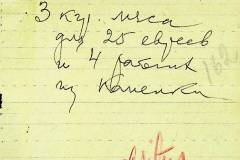 3 кур. мяса
для 25 евреев
и 4 рабочих
из Каменки
162